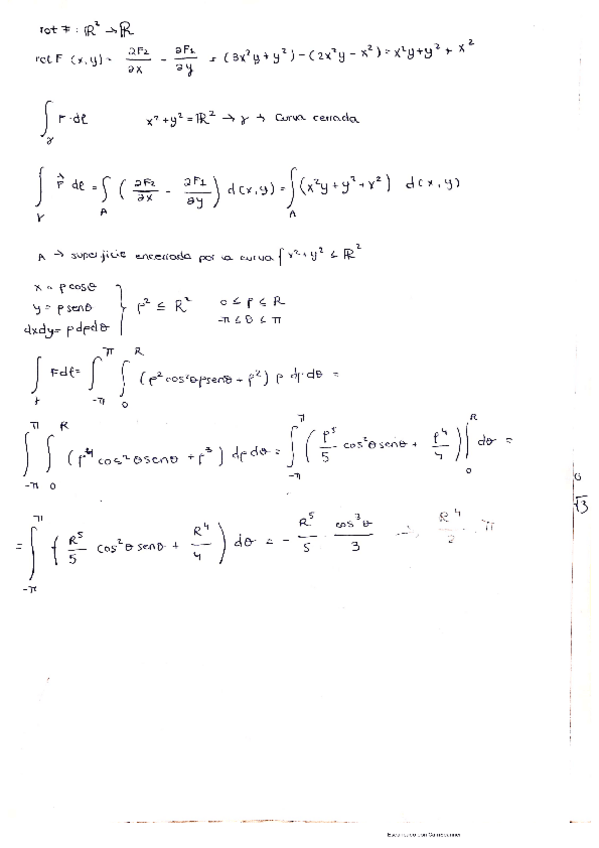 rot F : ℝ² → ℝ
rot F (x,y) = ∂F₂/∂x − ∂F₁/∂y = (3x²y + y²) − (2x²y − x²) = x²y + y² + x²
∫_γ F·dl x² + y² = ℝ² → γ → Curva cerrada
∫_γ F⃗ dl = ∫_A (∂F₂/∂x − ∂F₁/∂y) d(x,y) = ∫_A (x²y + y² + x²) d(x,y)
A → superficie encerrada por la curva { x² + y² ≤ ℝ²
x = ρcosθ
y = ρsenθ } ρ² ≤ R² 0 ≤ ρ ≤ R
dxdy = ρdρdθ -π ≤ θ ≤ π
∫_γ Fdl = ∫_{-π}^{π} ∫_0^R (ρ²cos²θρsenθ + ρ²) ρ dρ·dθ =
∫_{-π}^{π} ∫_0^R (ρ⁴ cos²θsenθ + ρ³) dρdθ = ∫_{-π}^{π} (ρ⁵/5 cos²θsenθ + ρ⁴/4)|_0^R dθ =
= ∫_{-π}^{π} (R⁵/5 cos²θ senθ + R⁴/4) dθ = − R⁵/5 · cos³θ/3 + R⁴/2 · π
√3
Escaneado con CamScanner